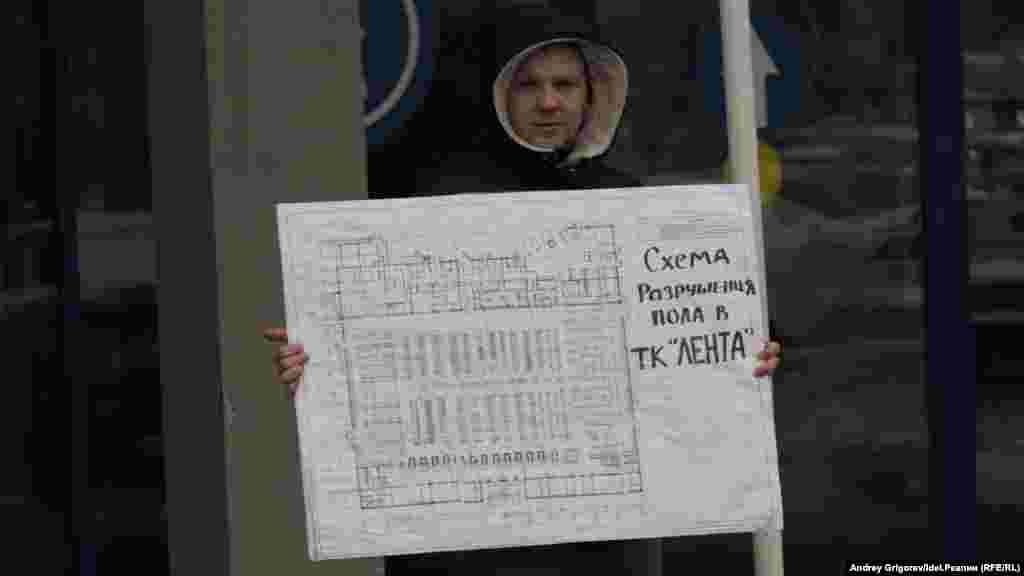 Схема
Разрушения
пола в
ТК "ЛЕНТА"
Andrey Grigorev/Idel.Реалии (RFE/RL)